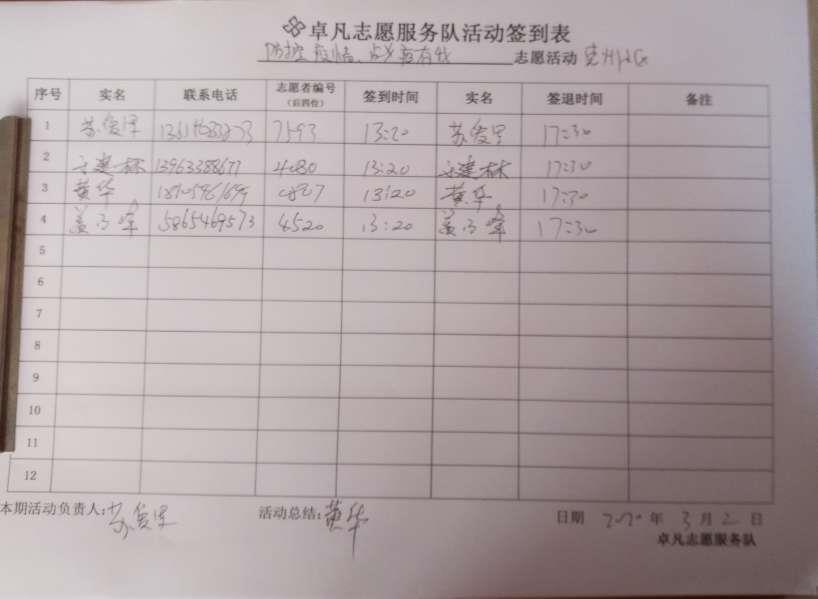 卓凡志愿服务队活动签到表
防控疫情、 志愿活动
序号 实名 联系电话 志愿者编号（后四位） 签到时间 实名 签退时间 备注
1 苏爱军 7593 13:20 苏爱军 17:30
2 建林 13963388677 4080 13:20 建林 17:30
3 黄华 13:20 黄华 17:30
4 峰 5865469573 4520 13:20 峰 17:30
5
6
7
8
9
10
11
12
本期活动负责人: 苏爱军 活动总结: 黄华 日期 2020 年 3 月 2 日
卓凡志愿服务队